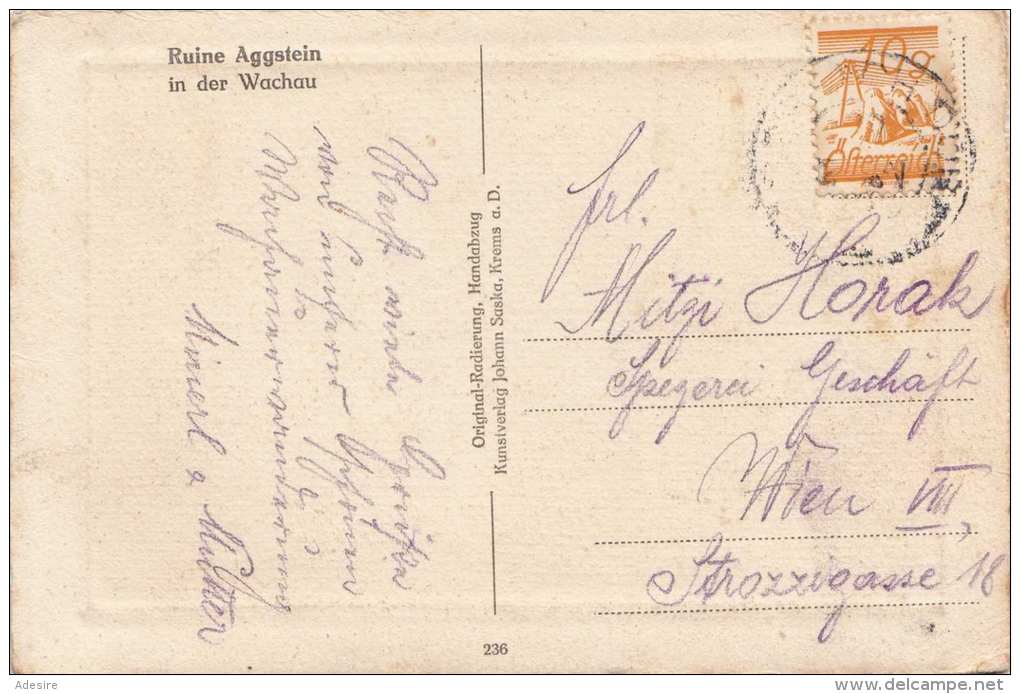 Ruine Aggstein
in der Wachau
Recht viele Grüße
von unserer schönen
Mutter
Original-Radierung, Handabzug
Kunstverlag Johann Saska, Krems a. D.
10g
Österreich
Frl.
Mitzi Horak
Spezerei Geschäft
Wien VIII,
Strozzigasse 18
236
Adesire
delcampe.net